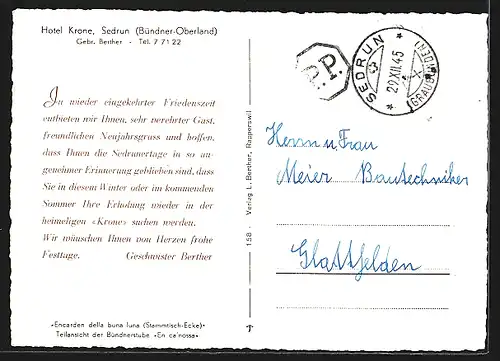 Hotel Krone, Sedrun (Bündner-Oberland)
Gebr. Berther - Tel. 7 71 22
In wieder eingekehrter Friedenszeit
entbieten wir Ihnen, sehr verehrter Gast,
freundlichen Neujahrsgruss und hoffen,
dass Ihnen die Sedrunertage in so an-
genehmer Erinnerung geblieben sind, dass
Sie in diesem Winter oder im kommenden
Sommer Ihre Erholung wieder in der
heimeligen «Krone» suchen werden.
Wir wünschen Ihnen von Herzen frohe
Festtage. Geschwister Berther
«Encarden della buna luna (Stammtisch-Ecke)»
Teilansicht der Bündnerstube «En ca'nossa»
158 - Verlag L. Berther, Rapperswil
P.P.
SEDRUN
29.XII.45
(GRAUBÜNDEN)
Herrn u. Frau
Meier Bautechniker
Glattfelden